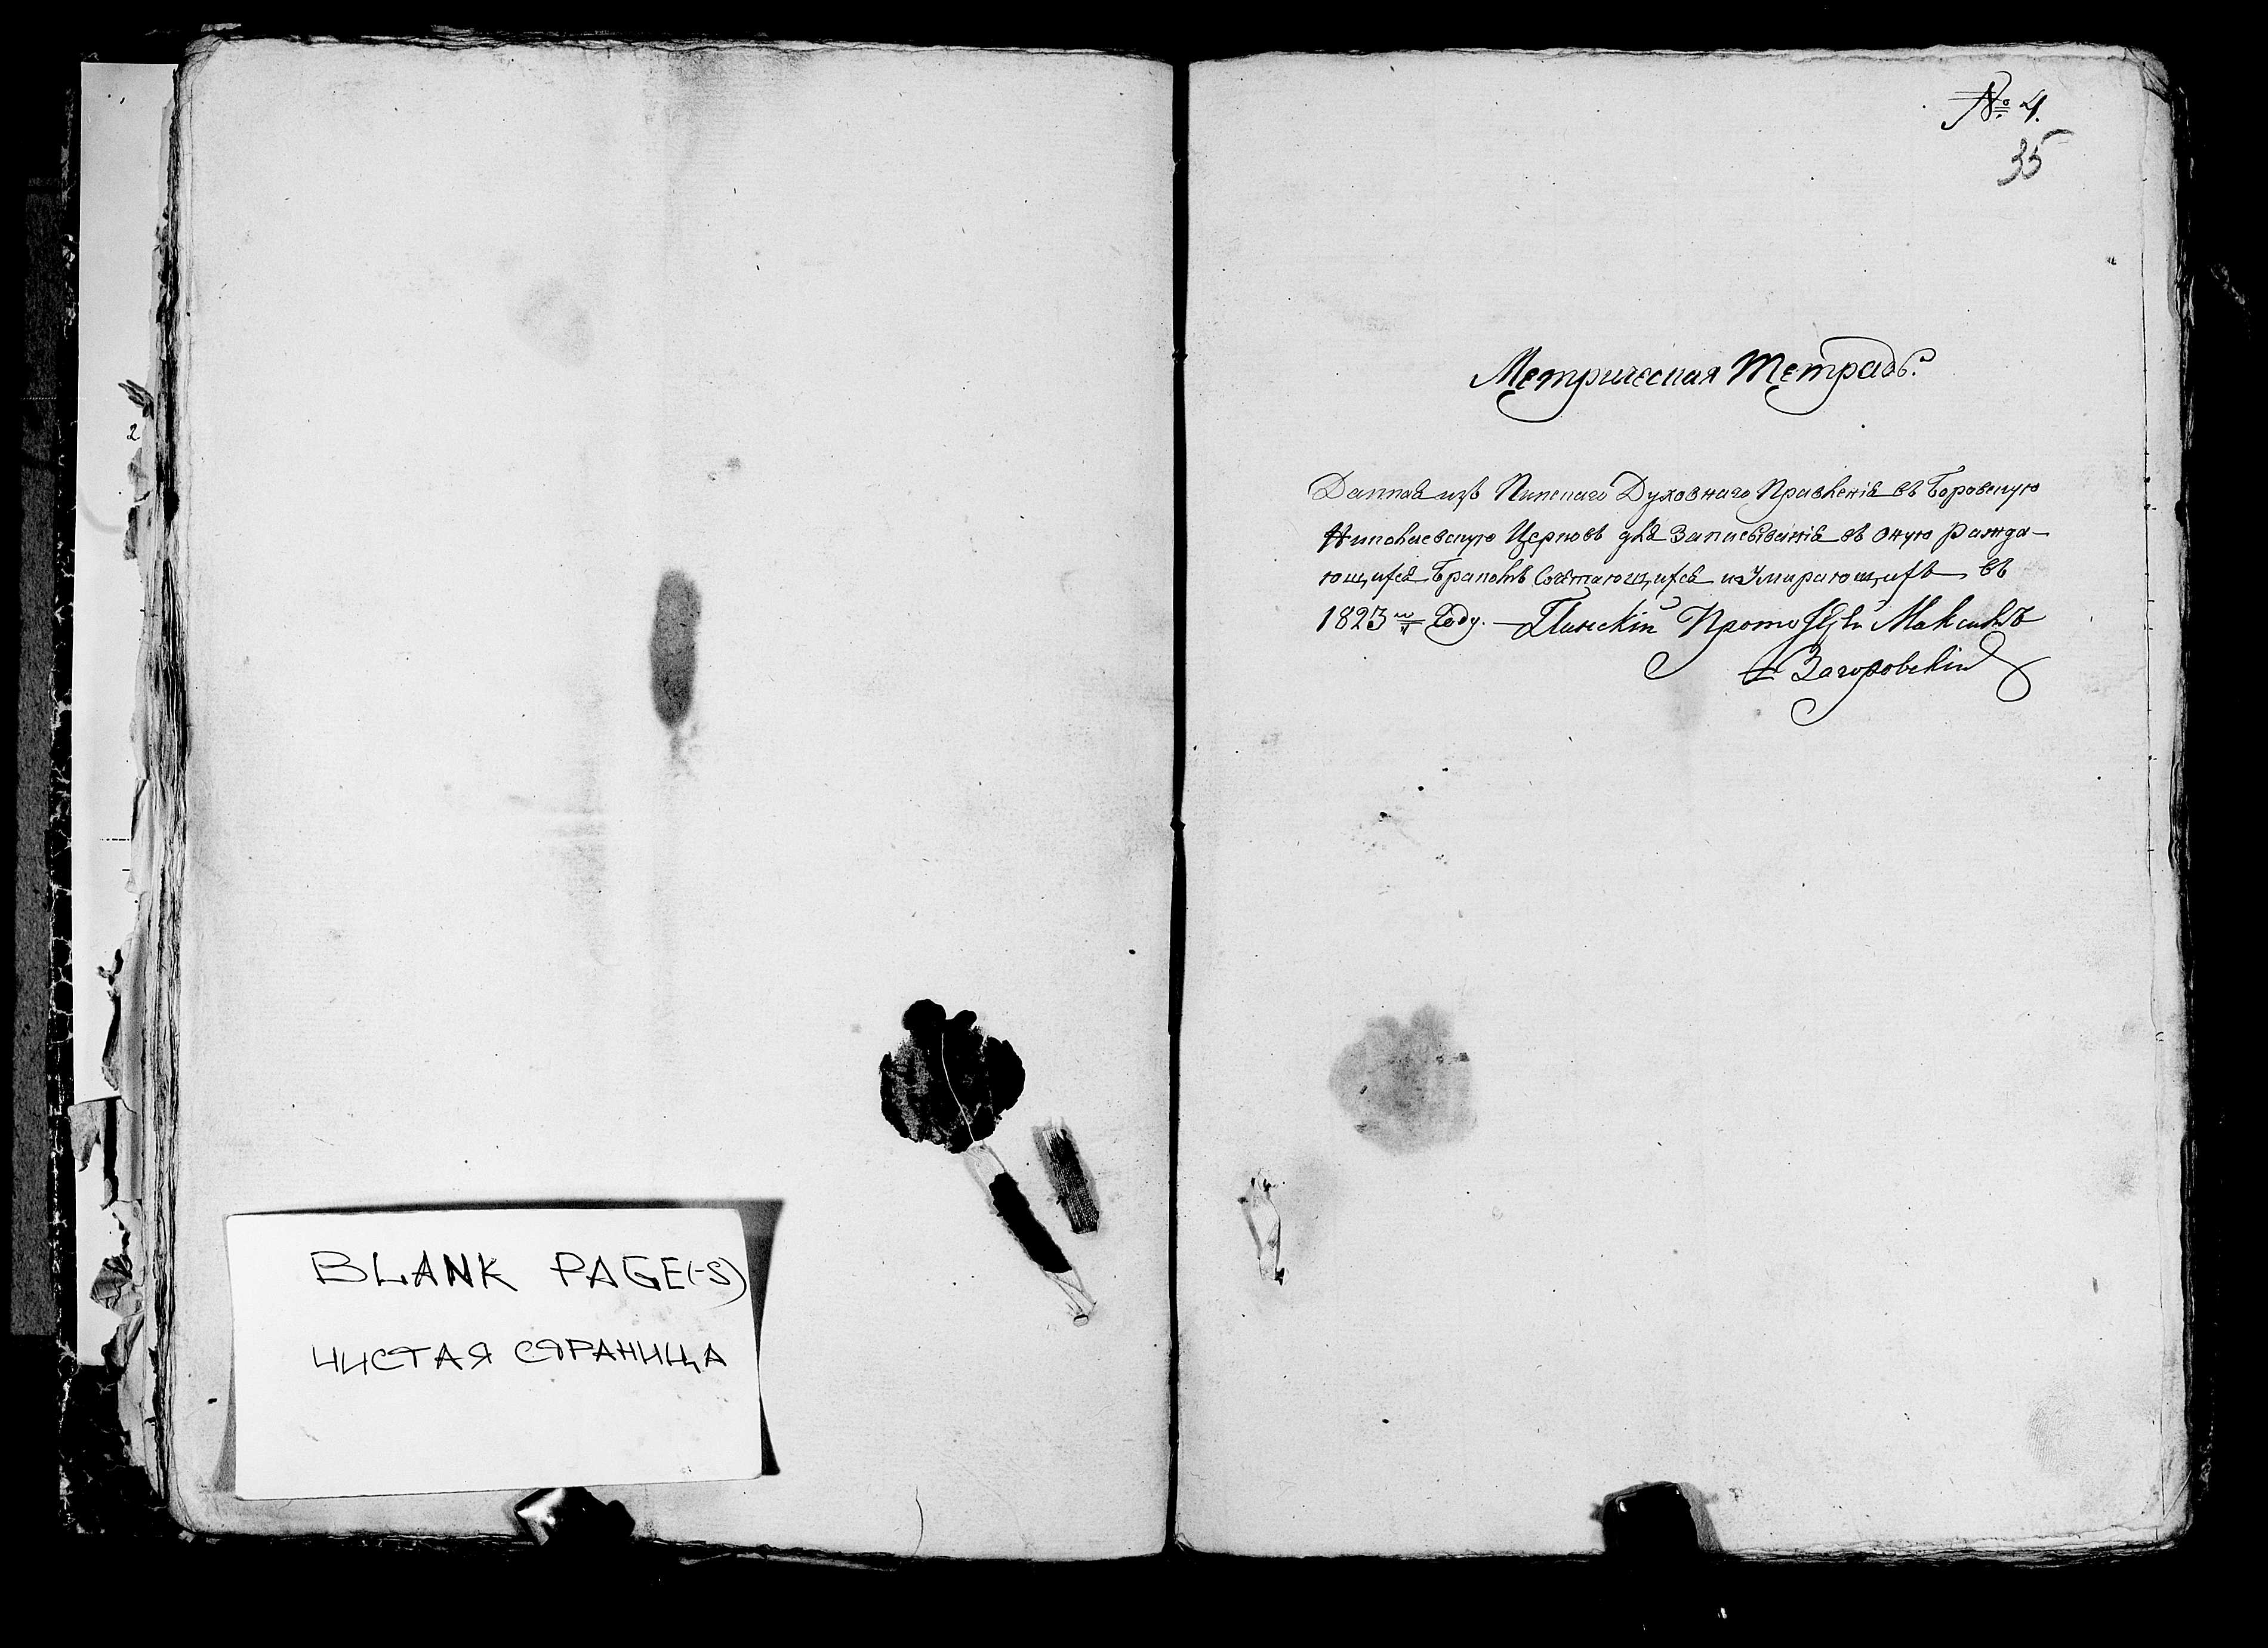 BLANK PAGE(-S)
ЧИСТАЯ СТРАНИЦА
№ 4.
35
Метрическая Тетрадь.
Данная изъ Пинскаго Духовнаго Правленія въ Боровскую
Николаевскую Церковь для Записыванія въ оную ражда-
ющихся Бракомъ Сочетающихся и Умирающихъ въ
1823 м Году. — Пинскій Прото Максимъ
Загоровскій